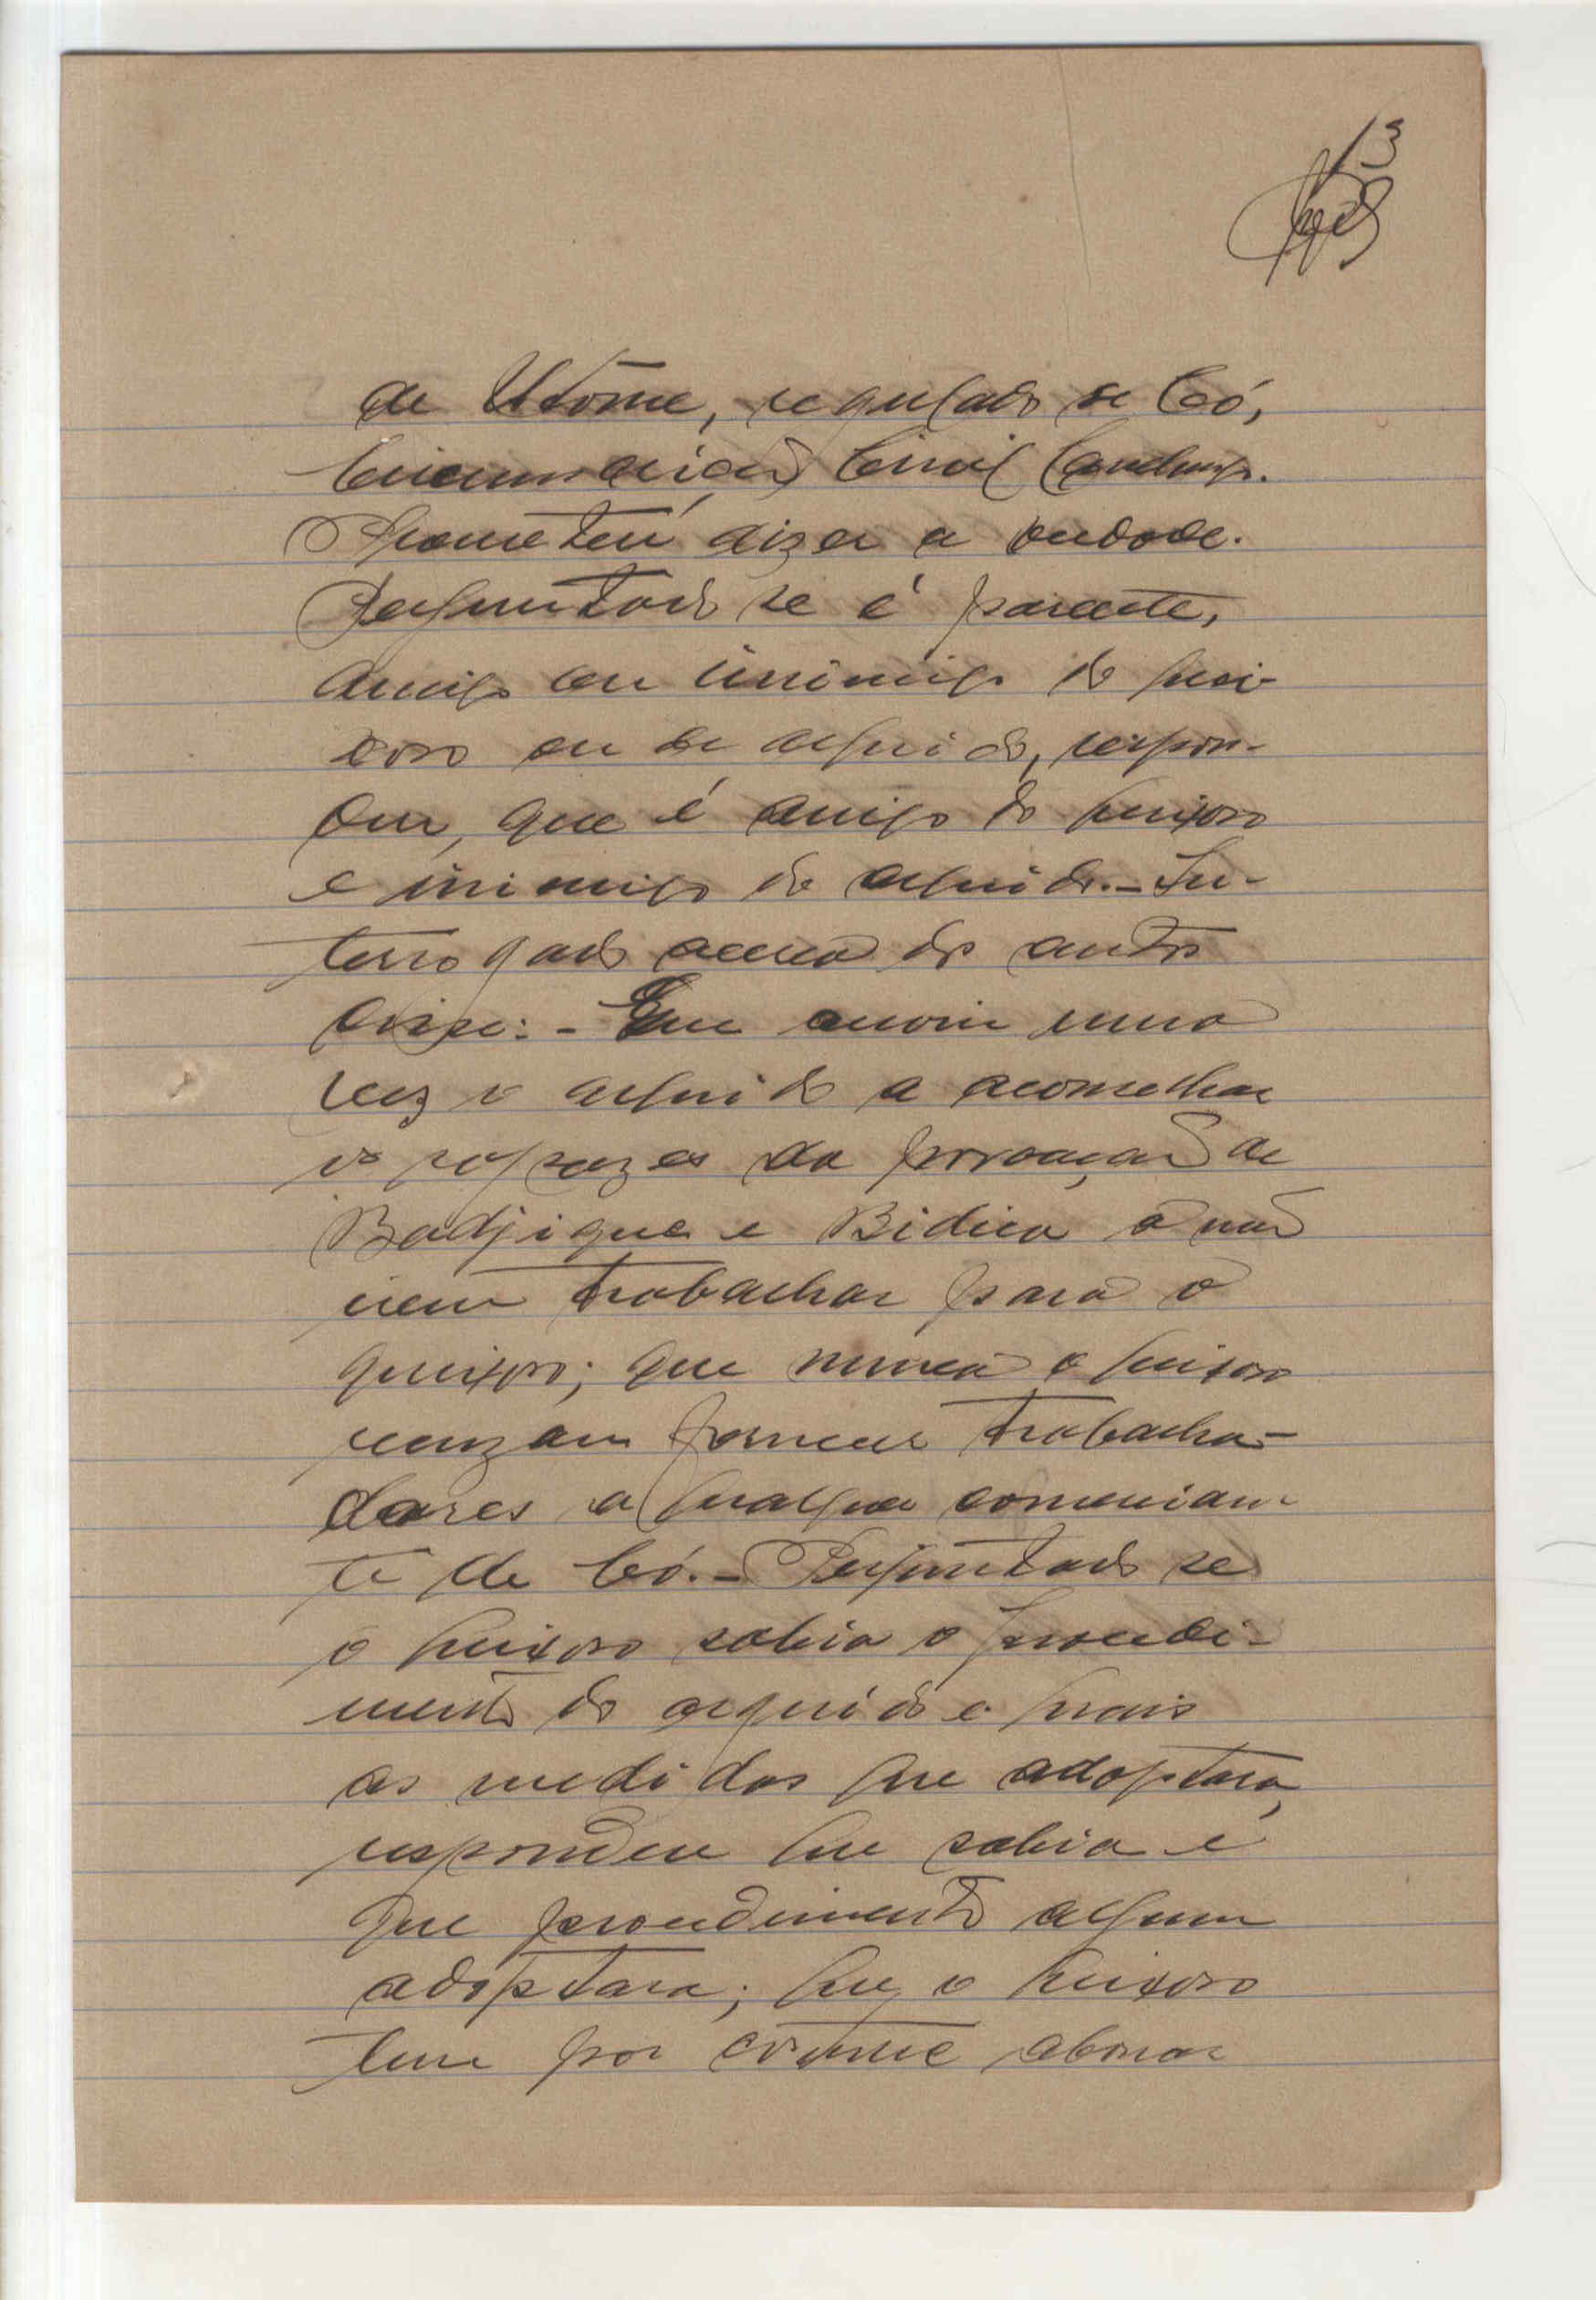 13
de Utome, regulado de Có,
Circunscrição Civil Canchungo.
Prometeu dizer a verdade.
Perguntado se é parente,
amigo ou inimigo do quei-
xoso ou do arguido, respon-
deu, que é amigo do queixoso
e inimigo do arguido. - In-
terrogado acerca dos autos
disse: - Que ouviu uma
vez o arguido a aconselhar
os rapazes da povoação de
Badjique e Bidica a não
irem trabalhar para o
queixoso; que nunca o queixoso
recusou fornecer trabalha-
dores a qualquer comercian-
te de Có. - Perguntado se
o queixoso sabia o procedi-
mento do arguido e quais
as medidas que adoptara,
respondeu que sabia e
que procedimento algum
adoptara; que o queixoso
tem por costume abonar